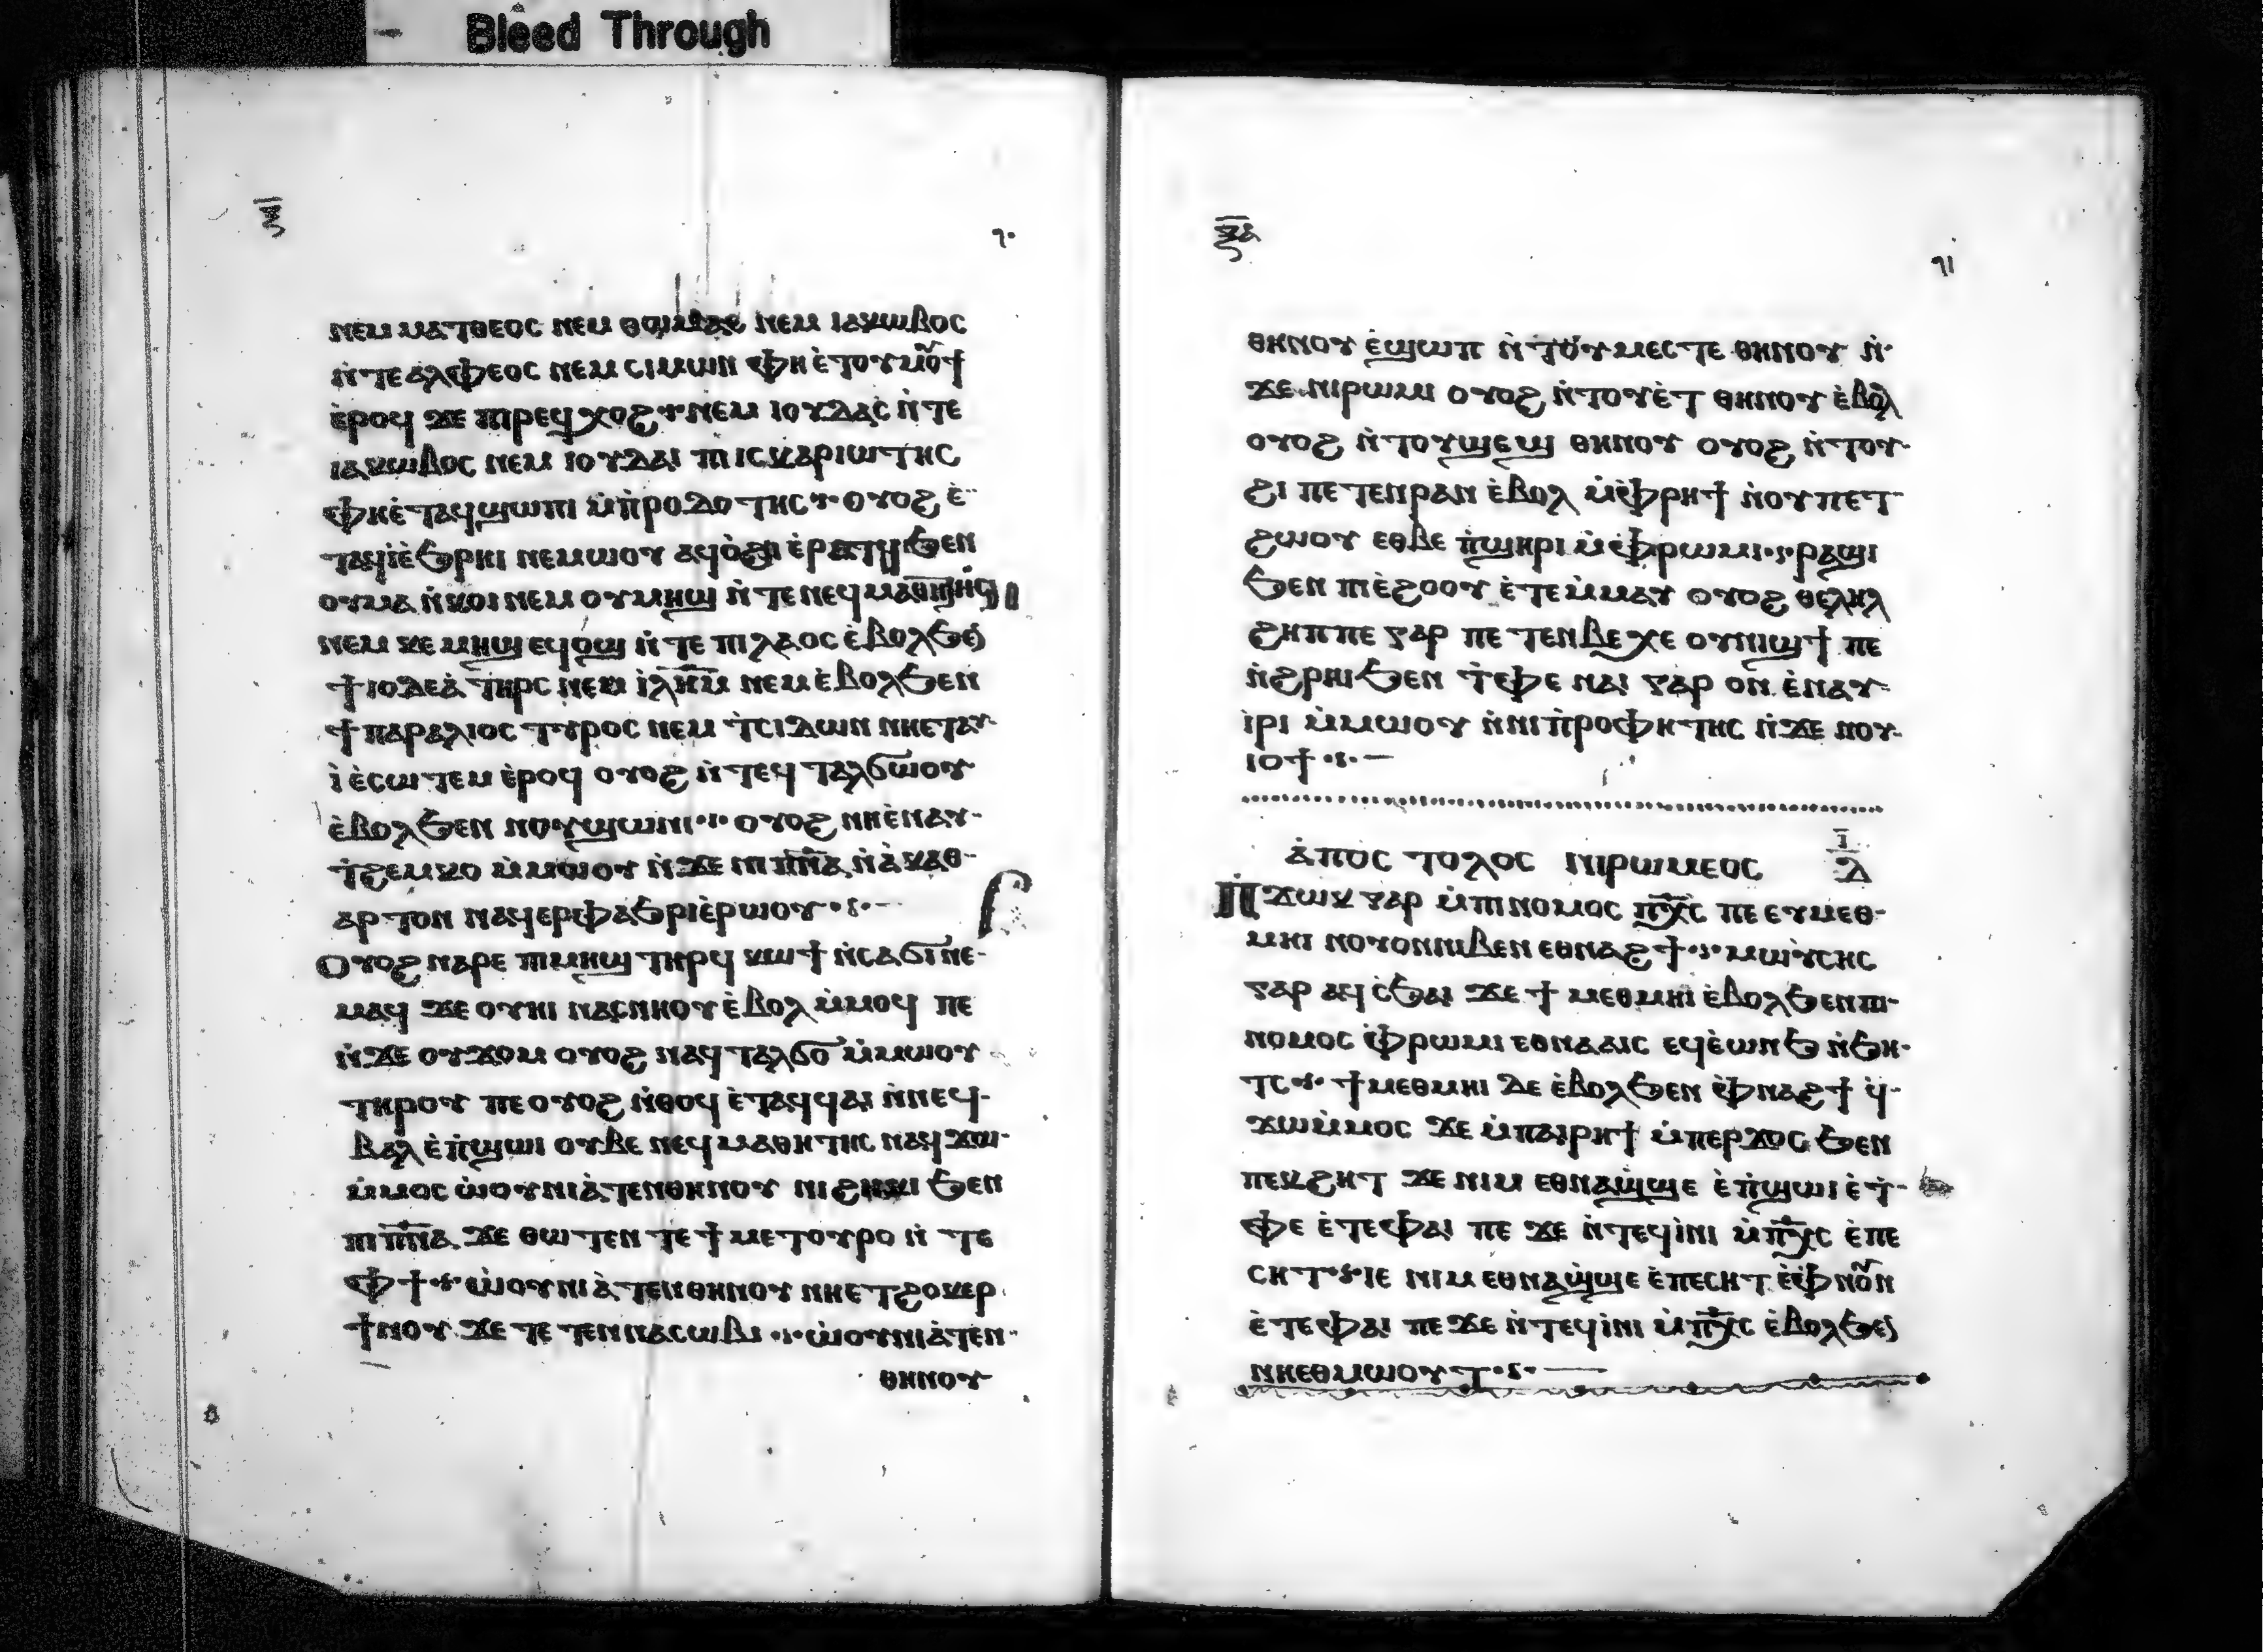 Bleed Through
ⲝ̅
ⲛⲉⲙ ⲙⲁⲧⲑⲉⲟⲥ ⲛⲉⲙ ⲑⲱⲙⲁⲥ ⲛⲉⲙ ⲓⲁⲕⲱⲃⲟⲥ
ⲛ̀ⲧⲉ ⲁⲗⲫⲉⲟⲥ ⲛⲉⲙ ⲥⲓⲙⲱⲛ ⲫⲏ ⲉ̀ⲧⲟⲩⲙⲟϯ
ⲉ̀ⲣⲟϥ ϫⲉ ⲡⲓⲣⲉϥⲭⲟϩ ⲛⲉⲙ ⲓⲟⲩⲇⲁⲥ ⲛ̀ⲧⲉ
ⲓⲁⲕⲱⲃⲟⲥ ⲛⲉⲙ ⲓⲟⲩⲇⲁⲓ ⲡⲓⲥⲕⲁⲣⲓⲱⲧⲏⲥ
ⲫⲏ ⲉ̀ⲧⲁϥϣⲱⲡⲓ ⲙ̀ⲡ̀ⲣⲟⲇⲟⲧⲏⲥ ⲟⲩⲟϩ ⲉ̀-
ⲧⲁϥⲓ̀ⲉ̀ϧⲣⲏⲓ ⲛⲉⲙⲱⲟⲩ ⲁϥⲟ̀ϩⲓ ⲉ̀ⲣⲁⲧϥ ϧⲉⲛ
ⲟⲩⲙⲁ ⲛ̀ⲕⲟⲓ ⲛⲉⲙ ⲟⲩⲙⲏϣ ⲛ̀ⲧⲉ ⲛⲉϥⲙⲁⲑⲏⲧⲏⲥ
ⲛⲉⲙ ⲕⲉ ⲙⲏϣ ⲉϥⲟϣ ⲛ̀ⲧⲉ ⲡⲓⲗⲁⲟⲥ ⲉ̀ⲃⲟⲗϧⲉⲛ
ϯⲓⲟⲇⲉⲁ̀ ⲧⲏⲣⲥ ⲛⲉⲙ ⲓ̀ⲗ̅ⲏ̅ⲙ̅ ⲛⲉⲙ ⲉ̀ⲃⲟⲗϧⲉⲛ
ϯⲡⲁⲣⲁⲗⲓⲟⲥ ⲧⲩⲣⲟⲥ ⲛⲉⲙ ⲧ̀ⲥⲓⲇⲱⲛ ⲛⲏⲉⲧⲁⲩ-
ⲓ̀ ⲉ̀ⲥⲱⲧⲉⲙ ⲉ̀ⲣⲟϥ ⲟⲩⲟϩ ⲛ̀ⲧⲉϥ ⲧⲁⲗϭⲱⲟⲩ
ⲉ̀ⲃⲟⲗϧⲉⲛ ⲛⲟⲩϣⲱⲛⲓ ⲟⲩⲟϩ ⲛⲏⲉ̀ⲛⲁⲩ-
ⲧ̀ϩⲉⲙⲕⲟ ⲙ̀ⲙⲱⲟⲩ ⲛ̀ϫⲉ ⲛⲓⲡ̅ⲛ̅ⲁ̅ ⲛ̀ⲁ̀ⲕⲁⲑ-
ⲁⲣⲧⲟⲛ ⲛⲁϥⲉⲣⲫⲁϧⲣⲓ ⲉ̀ⲣⲱⲟⲩ
ⲟⲩⲟϩ ⲛⲁⲣⲉ ⲡⲓⲙⲏϣ ⲧⲏⲣϥ ⲕⲱϯ ⲛ̀ⲥⲁϭⲓⲛⲉ-
ⲙⲁϥ ϫⲉ ⲟⲩⲏⲓ ⲛⲁⲥⲛⲏⲟⲩ ⲉ̀ⲃⲟⲗ ⲙ̀ⲙⲟϥ ⲡⲉ
ⲛ̀ϫⲉ ⲟⲩϫⲟⲙ ⲟⲩⲟϩ ⲛⲁϥⲧⲁⲗϭⲟ ⲙ̀ⲙⲱⲟⲩ
ⲧⲏⲣⲟⲩ ⲡⲉ ⲟⲩⲟϩ ⲛ̀ⲑⲟϥ ⲉ̀ⲧⲁϥϥⲁⲓ ⲛ̀ⲛⲉϥ-
ⲃⲁⲗ ⲉ̀ⲡ̀ϣⲱⲓ ⲟⲩⲃⲉ ⲛⲉϥⲙⲁⲑⲏⲧⲏⲥ ⲛⲁϥϫⲱ-
ⲙ̀ⲙⲟⲥ ⲱ̀ⲟⲩⲛⲓⲁ̀ⲧⲉⲛⲑⲏⲛⲟⲩ ⲛⲓϩⲏⲕⲓ ϧⲉⲛ
ⲡⲓⲡ̅ⲛ̅ⲁ̅ ϫⲉ ⲑⲱⲧⲉⲛ ⲧⲉ ϯⲙⲉⲧⲟⲩⲣⲟ ⲛ̀ⲧⲉ
ⲫϯ ⲱ̀ⲟⲩⲛⲓⲁ̀ⲧⲉⲛⲑⲏⲛⲟⲩ ⲛⲏⲉⲧϩⲟⲕⲉⲣ
ϯⲛⲟⲩ ϫⲉ ⲧⲉⲧⲉⲛⲛⲁⲥⲱⲃⲓ ⲱ̀ⲟⲩⲛⲓⲁ̀ⲧⲉⲛ-
ⲑⲏⲛⲟⲩ
ⲝ̅ⲁ̅
ⲑⲏⲛⲟⲩ ⲉ̀ϣⲱⲡ ⲛ̀ⲧⲟⲩⲙⲉⲥⲧⲉ ⲑⲏⲛⲟⲩ ⲛ̀-
ϫⲉ ⲛⲓⲣⲱⲙⲓ ⲟⲩⲟϩ ⲛ̀ⲧⲟⲩⲉ̀ⲧ ⲑⲏⲛⲟⲩ ⲉ̀ⲃⲟⲗ
ⲟⲩⲟϩ ⲛ̀ⲧⲟⲩϣⲉϣ ⲑⲏⲛⲟⲩ ⲟⲩⲟϩ ⲛ̀ⲧⲟⲩ-
ϩⲓ ⲡⲉⲧⲉⲛⲣⲁⲛ ⲉ̀ⲃⲟⲗ ⲙ̀ⲫ̀ⲣⲏϯ ⲛ̀ⲟⲩⲡⲉⲧ-
ϩⲱⲟⲩ ⲉⲑⲃⲉ ⲡ̀ϣⲏⲣⲓ ⲙ̀ⲫ̀ⲣⲱⲙⲓ ⲣⲁϣⲓ
ϧⲉⲛ ⲡⲓⲉ̀ϩⲟⲟⲩ ⲉ̀ⲧⲉⲙ̀ⲙⲁⲩ ⲟⲩⲟϩ ⲑⲉⲗⲏⲗ
ϩⲏⲡⲡⲉ ⲅⲁⲣ ⲡⲉⲧⲉⲛⲃⲉⲭⲉ ⲟⲩⲛⲓϣϯ ⲡⲉ
ⲛ̀ϩⲣⲏⲓ ϧⲉⲛ ⲧ̀ⲫⲉ ⲛⲁⲓ ⲅⲁⲣ ⲟⲛ ⲉ̀ⲛⲁⲩ-
ⲓ̀ⲣⲓ ⲙ̀ⲙⲱⲟⲩ ⲛ̀ⲛⲓⲡ̀ⲣⲟⲫⲏⲧⲏⲥ ⲛ̀ϫⲉ ⲛⲟⲩ-
ⲓⲟϯ
ⲁ̀ⲡⲟⲥⲧⲟⲗⲟⲥ ⲛⲓⲣⲱⲙⲉⲟⲥ ⲓ̅ ⲗ̅
ⲡ̀ϫⲱⲕ ⲅⲁⲣ ⲙ̀ⲡⲓⲛⲟⲙⲟⲥ ⲡⲭ̅ⲥ ⲡⲉ ⲉⲩⲙⲉⲑ-
ⲙⲏⲓ ⲛⲟⲩⲟⲛⲛⲓⲃⲉⲛ ⲉⲑⲛⲁϩϯ ⲙⲱⲩ̀ⲥⲏⲥ
ⲅⲁⲣ ⲁϥⲥ̀ϧⲁⲓ ϫⲉ ϯⲙⲉⲑⲙⲏⲓ ⲉ̀ⲃⲟⲗϧⲉⲛ ⲡⲓ-
ⲛⲟⲙⲟⲥ ⲫ̀ⲣⲱⲙⲓ ⲉⲑⲛⲁⲁⲓⲥ ⲉϥⲉ̀ⲱⲛϧ ⲛ̀ϧⲏ-
ⲧⲥ ϯⲙⲉⲑⲙⲏⲓ ⲇⲉ ⲉ̀ⲃⲟⲗϧⲉⲛ ⲫ̀ⲛⲁϩϯ ϥ̀-
ϫⲱⲙ̀ⲙⲟⲥ ϫⲉ ⲙ̀ⲡⲁⲓⲣⲏϯ ⲙ̀ⲡⲉⲣϫⲟⲥ ϧⲉⲛ
ⲡⲉⲕϩⲏⲧ ϫⲉ ⲛⲓⲙ ⲉⲑⲛⲁϣ̀ϣⲉ ⲉ̀ⲡ̀ϣⲱⲓ ⲉ̀ⲧ̀-
ⲫⲉ ⲉ̀ⲧⲉⲫⲁⲓ ⲡⲉ ϫⲉ ⲛ̀ⲧⲉϥⲓ̀ⲛⲓ ⲙ̀ⲡⲭ̅ⲥ ⲉ̀ⲡⲉ
ⲥⲏⲧ ⲓⲉ ⲛⲓⲙ ⲉⲑⲛⲁϣ̀ϣⲉ ⲉ̀ⲡⲉⲥⲏⲧ ⲉ̀ⲫ̀ⲛⲟⲛ
ⲉ̀ⲧⲉⲫⲁⲓ ⲡⲉ ϫⲉ ⲛ̀ⲧⲉϥⲓ̀ⲛⲓ ⲙ̀ⲡⲭ̅ⲥ ⲉ̀ⲃⲟⲗϧⲉⲛ
ⲛⲏⲉⲑⲙⲱⲟⲩⲧ